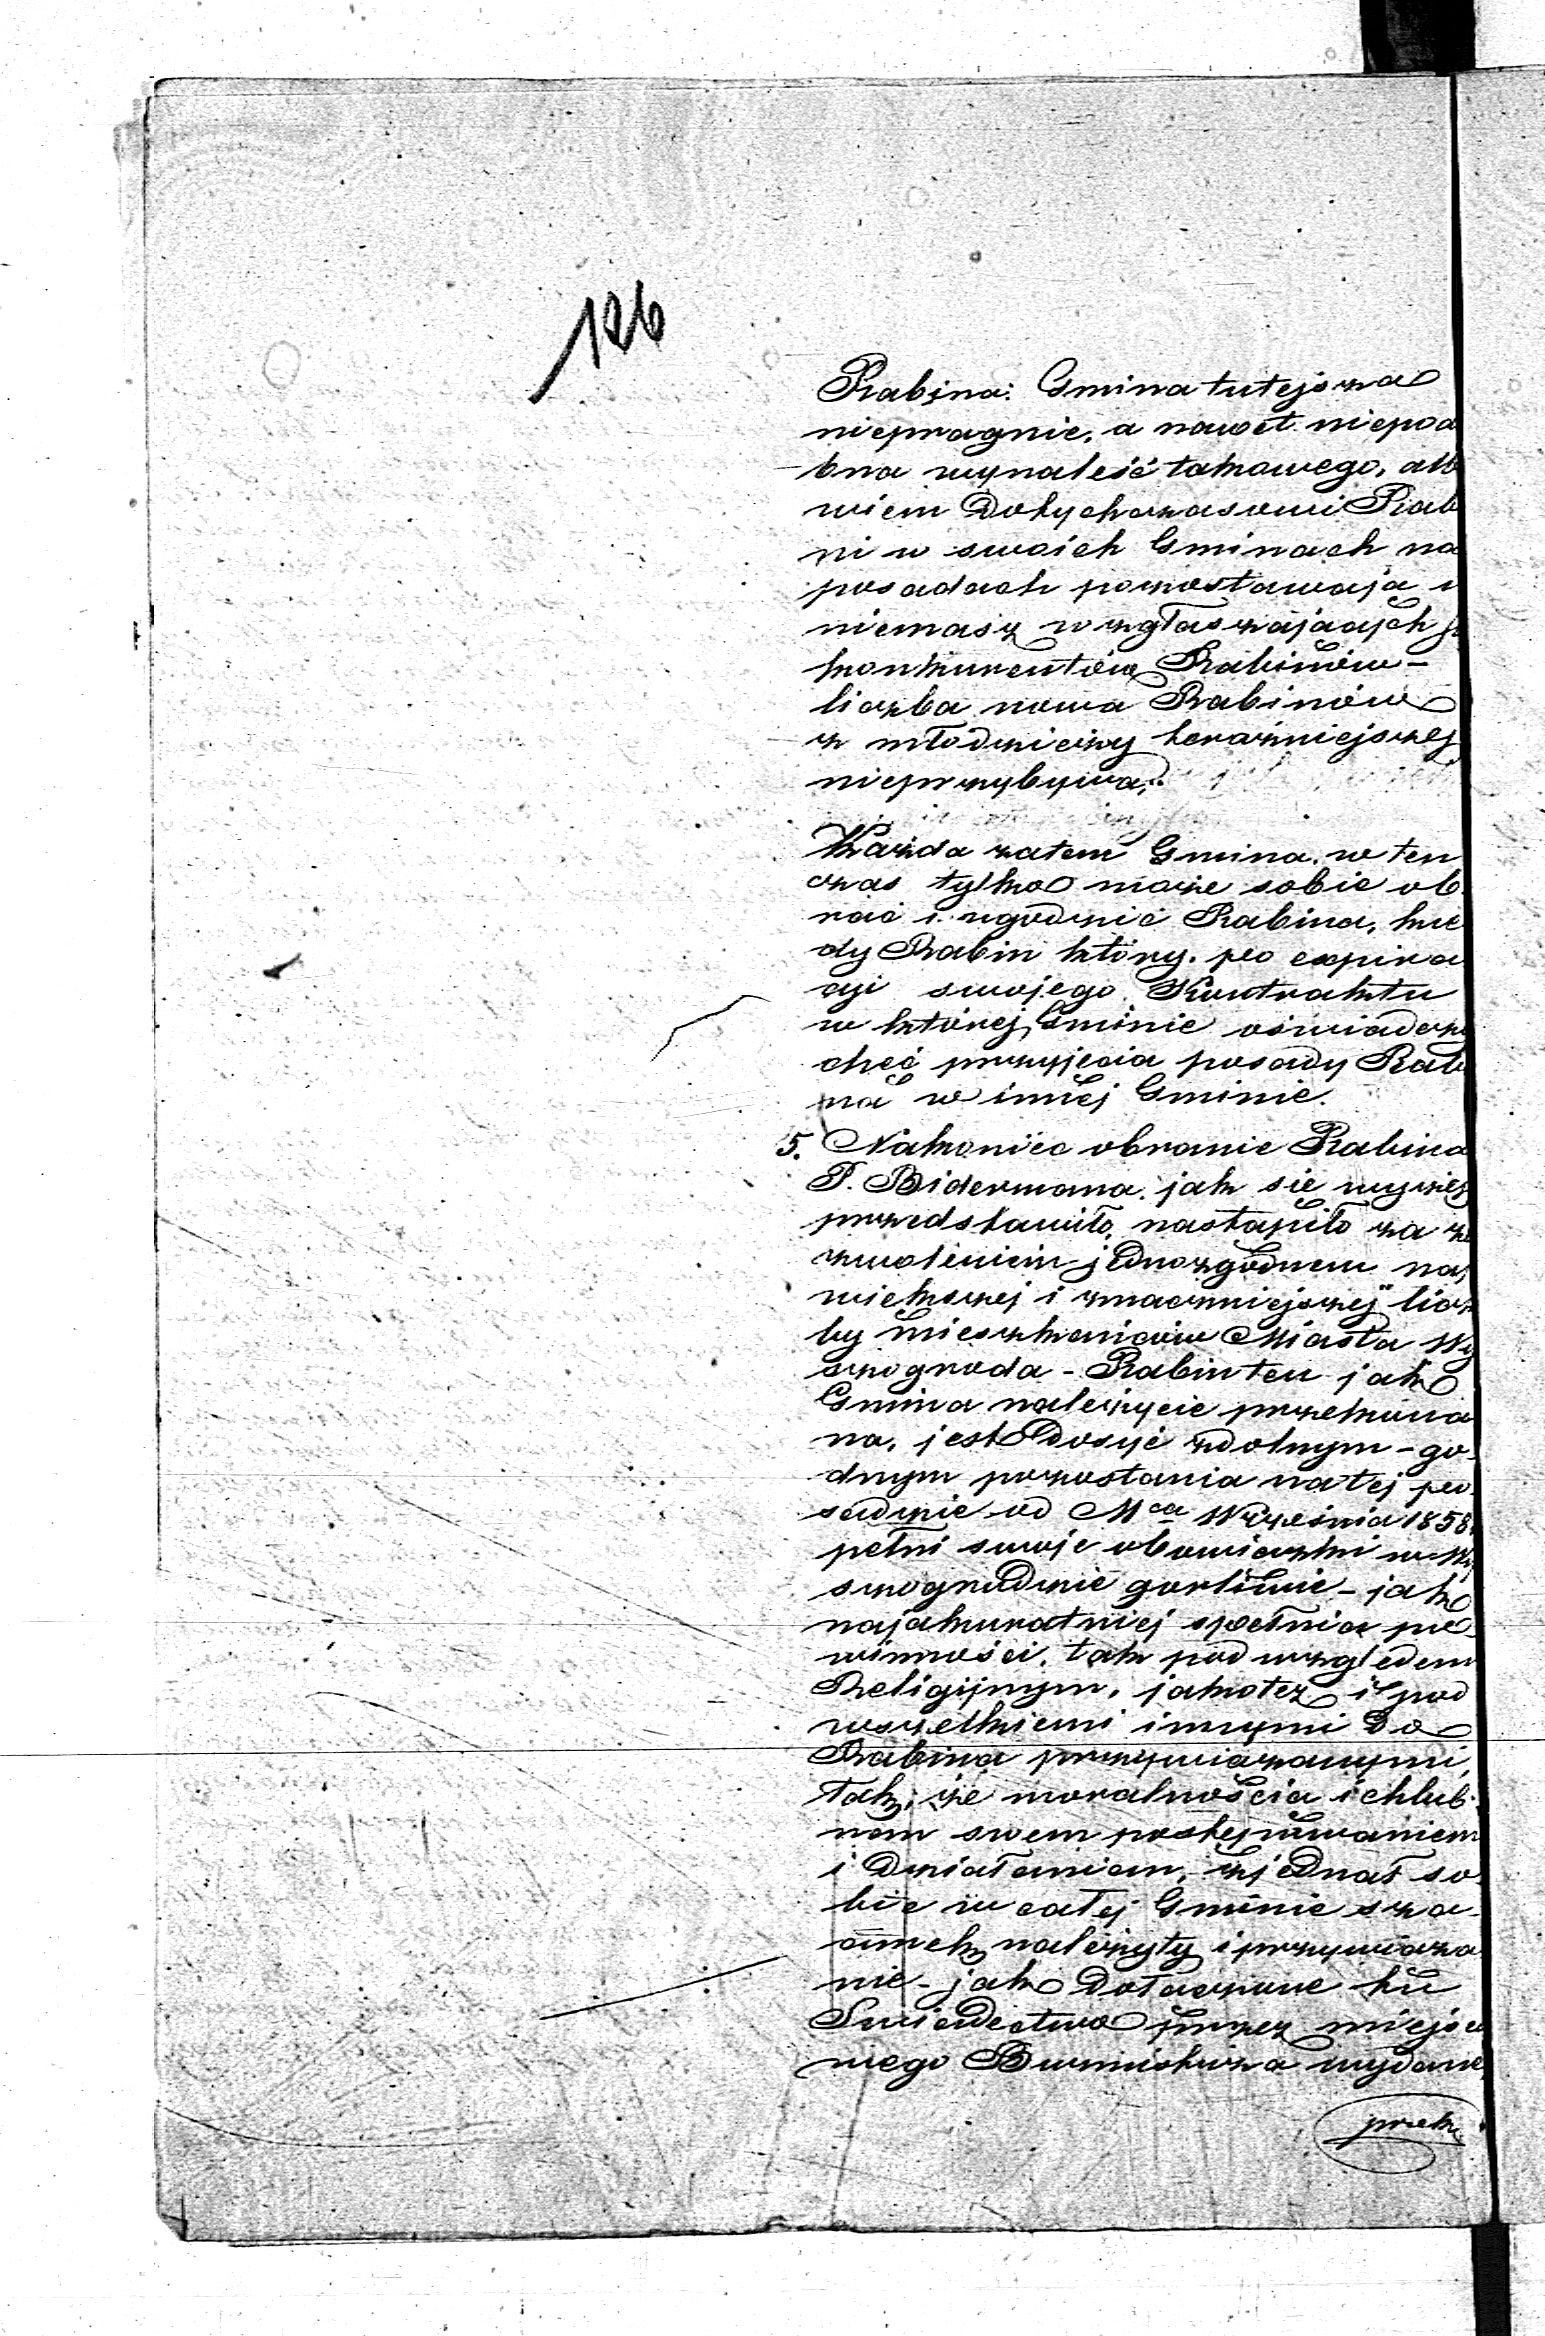 126
Rabina: Gmina tutejsza
niepragnie, a nawet niepod
bna wynaleść takowego, alb
wiem Dotychczasowi Rab
ni w swoich Gminach na
posadach pozostawają i
niemasz w zgłaszających
konkurentów Rabinów –
liczba nowa Rabinów
z młodzieży teraźniejszej
nieprzybywa.
Każda zatem Gmina, w ten
czas tylko może sobie ob
rać i ugodzić Rabina, kie
dy Rabin który, po expira
cyi swojego Kontraktu
w której Gminie oświadczy
chęć przyjęcia posady Rab
na w innej Gminie.
5. Nakoniec obranie Rabina
P. Bidermana, jak się wyżej
przedstawiło, nastąpiło za ze
zwoleniem jednozgodnem naj
większej i znaczniejszej licz
by mieszkańców Miasta Wy
szogroda – Rabin ten jak
Gmina należycie przekona
na, jest Dosyć zdolnym – go
dnym pozostania na tej po
sadzie od Mca Września 1858
pełni swoje obowiązki w Wy
szogrodzie gorliwie – jak
najakuratniej spełnia po
winności, tak pod względem
Religijnym, jakoteż i pod
wszelkiemi innymi Do
Rabina przywiązanymi,
tak, że moralnością i chlub
nem swem postępowaniem
i Działaniem, zjednał so
bie w całej Gminie sza
cunek należyty i przywiąza
nie – jak Dołączone tu
Świadectwo przez miejsco
wego Burmistrza wydane,
przek